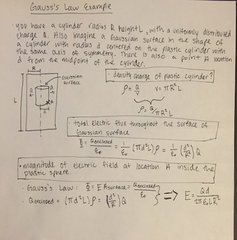 Gauss's Law Example
you have a cylinder radius R height L, with a uniformly distributed
charge Q. Also imagine a Gaussian surface in the shape of
a cylinder with radius d centered on the plastic cylinder with
the same axis of symmetry. There is also a point A location
d from the midpoint of the cylinder.
R
Gaussian
surface
L
• density charge of plastic cylinder?
ρ = Q/V V = πR²L
ρ = Q/πR²L
• total electric flux throughout the surface of
Gaussian surface
Φ = Qenclosed/ε₀ = 1/ε₀ (πd²L)ρ = 1/ε₀ (d²/R²) Q
• magnitude of electric field at location A inside the
plastic sphere
- Gauss's Law: Φ = E Asurface = Qenclosed/ε₀
- Qenclosed = (πd²L)ρ = (d²/R²)Q
⇒ E =